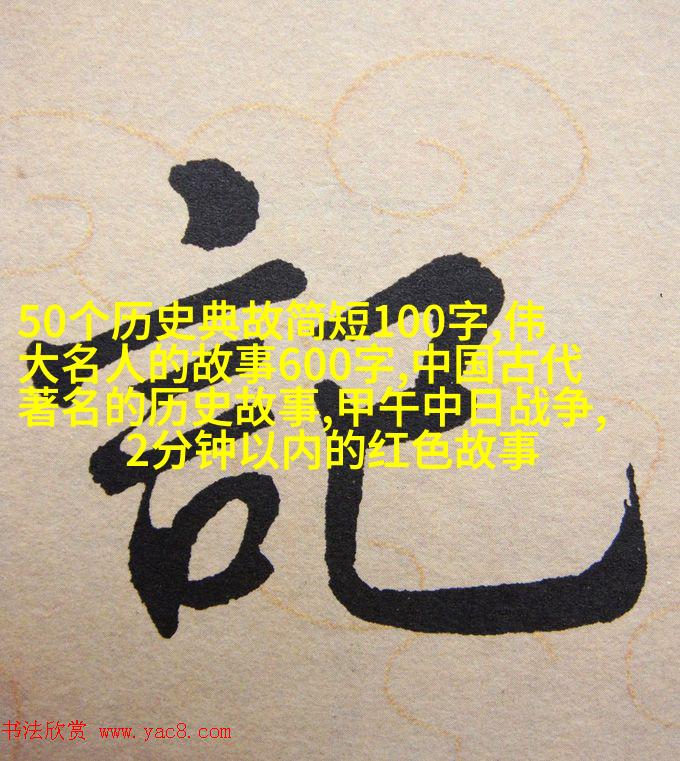 記
50个历史典故简短100字,伟
大名人的故事600字,中国古代
著名的历史故事,甲午中日战争,
2分钟以内的红色故事
书法欣赏 www.yac8.com